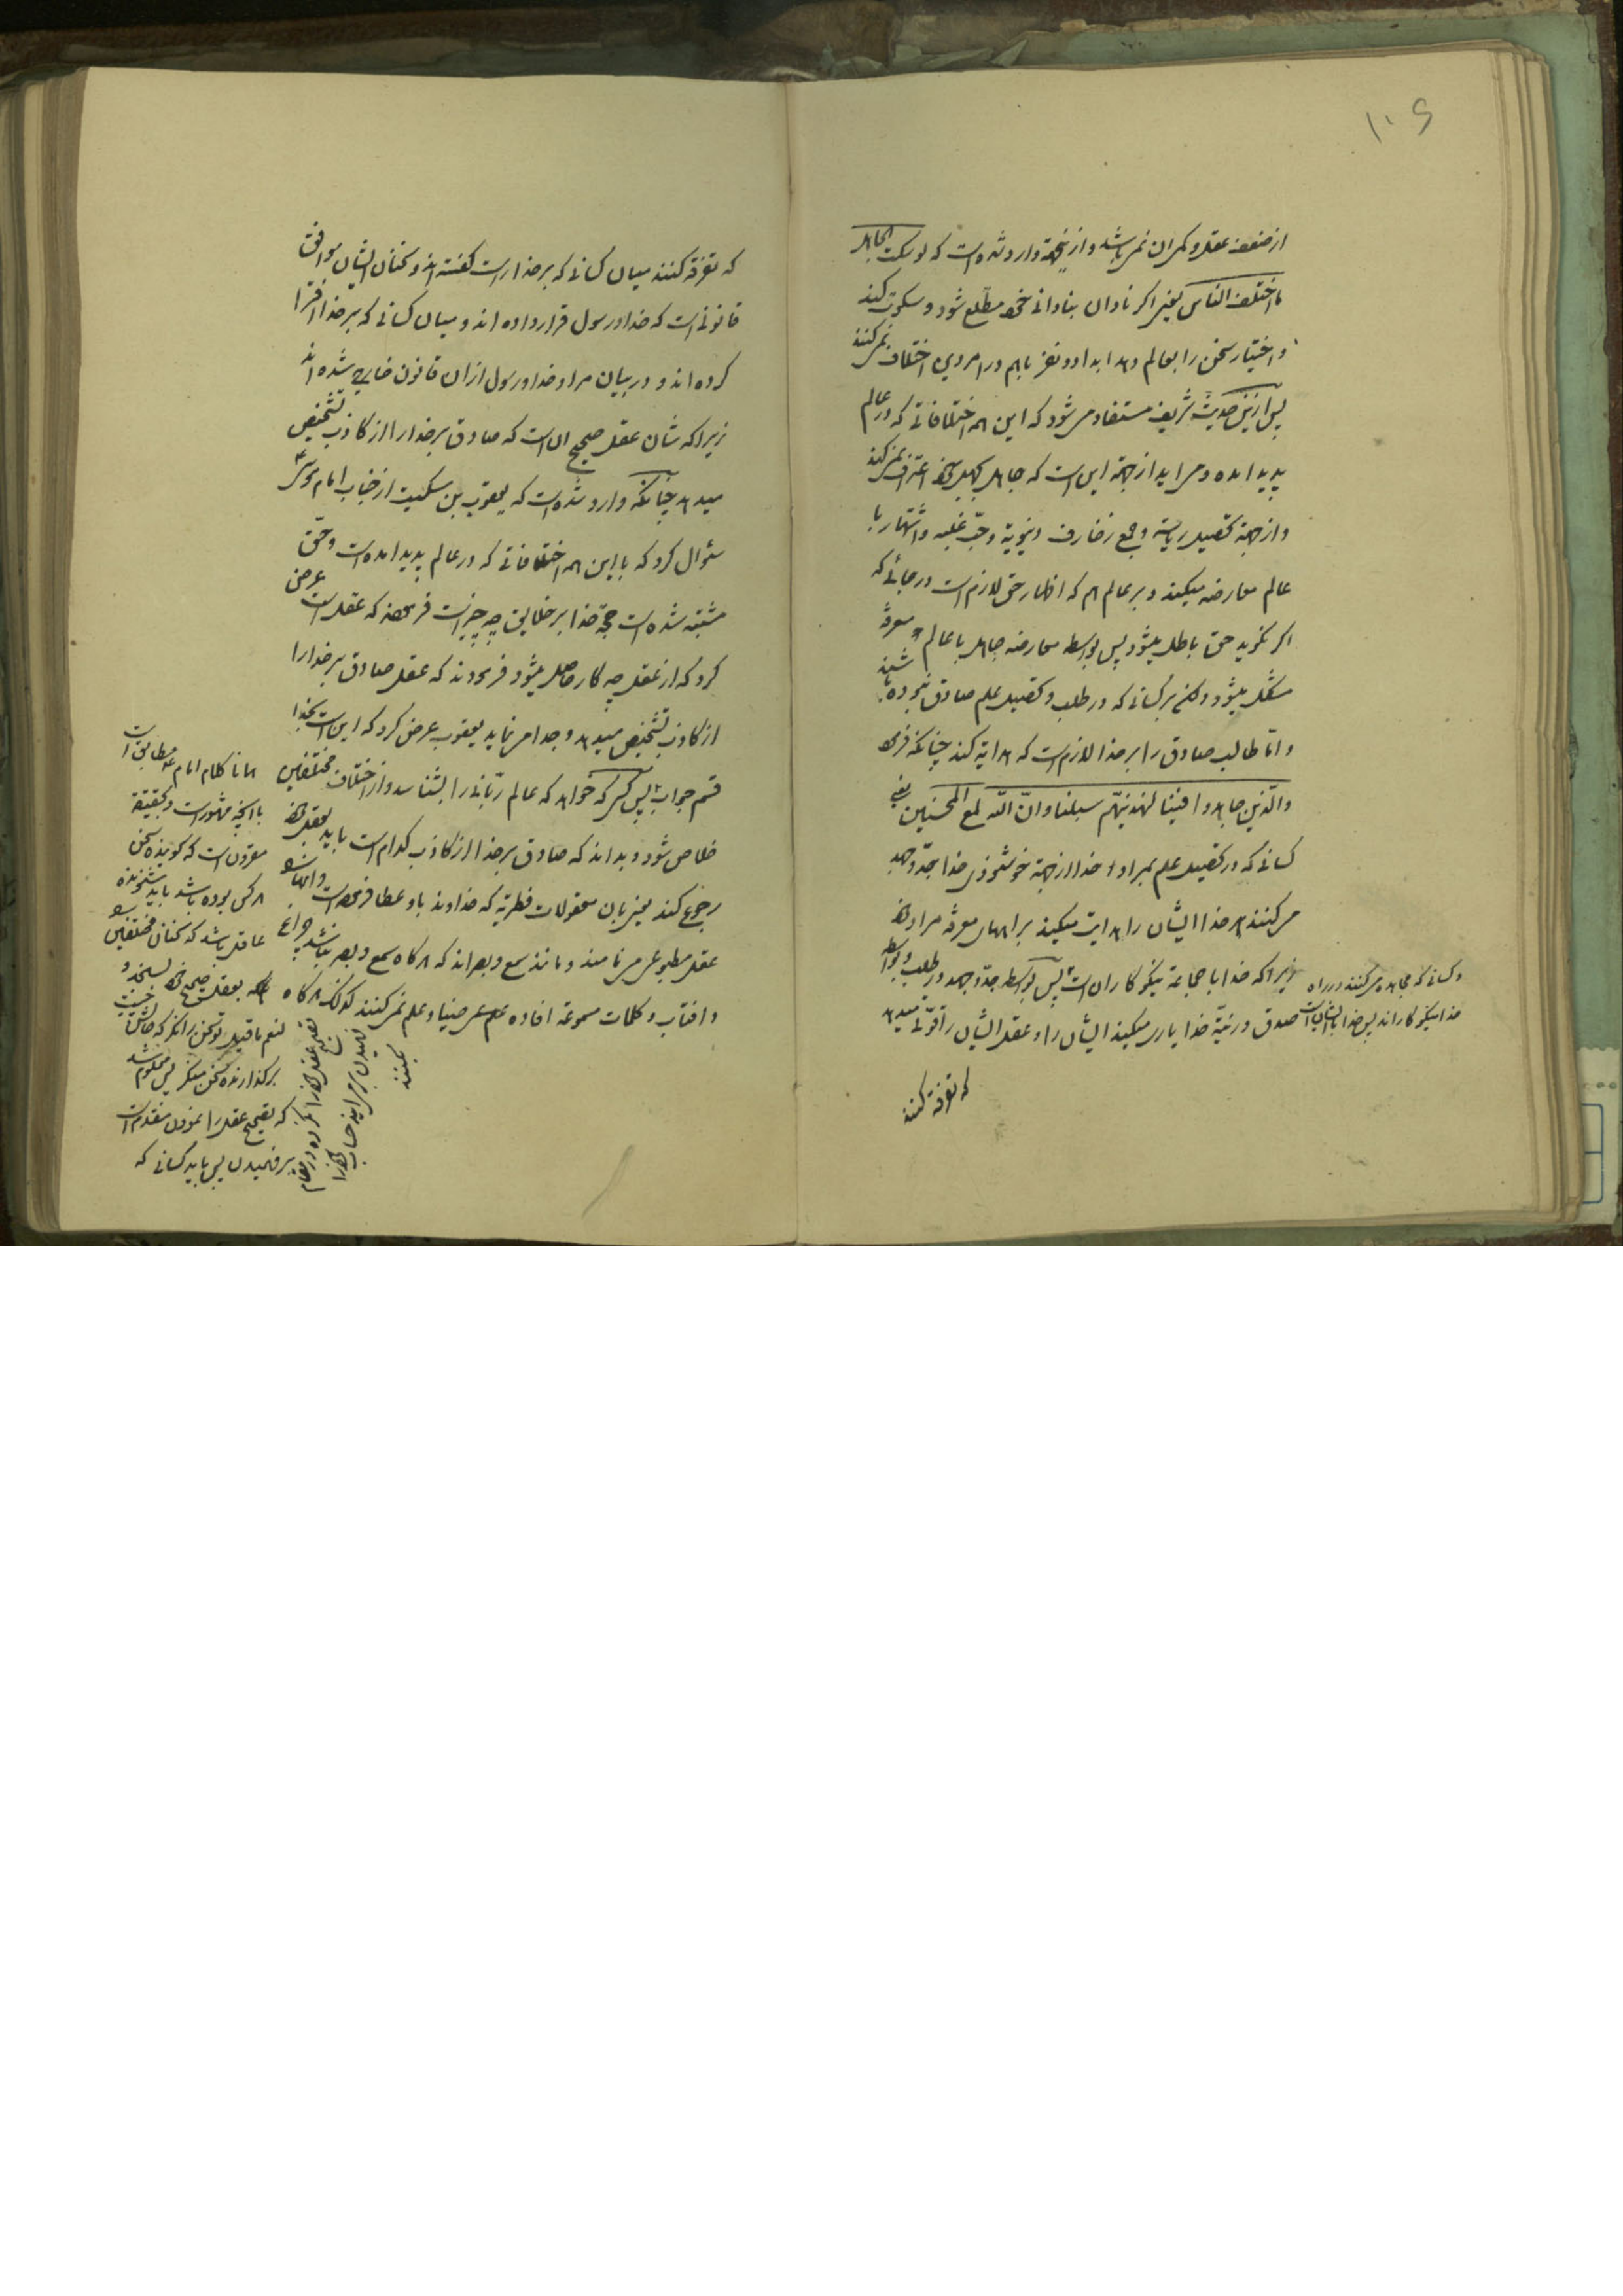 ۱۰۶
از ضعف عقل و کمران نمیباشد و ازینجهة وارد شده است که لو سکت الجاهل
ما اختلف الناس یعنی اکر نادان بنادانی خود مطلع شود و سکوت کند
و اختیار سخن را بعالم دهد ابدا دو نفر باهم در امر دین اختلاف نمیکنند
پس ازین حدیث شریف مستفاد میشود که این همه اختلافاتی که در عالم
پدید امده و میاید از جهة این است که جاهل بجهل خود اعتراف نمیکند
و از جهة تحصیل ریاسة و جمع زخارف دنیویة و حب غلبه و اشتهار با
عالم معارضه میکند و بر عالم هم که اظهار حق لازم است در جائی که
اکر نکوید حق باطل میشود پس بواسطه معارضه جاهل با عالم معرفة
مشکل میشود ولکن بر کسانی که در طلب و تحصیل علم صادق نبوده باشند
و اما طالب صادق را بر خدا لازم است که هدایة کند چنانکه فرمود
والذین جاهدوا فینا لنهدینهم سبلنا و ان الله لمع المحسنین یعنی
کسانی که در تحصیل علم بمراد خدا از جهة خوشنودی خدا جد و جهد
میکنند خدا ایشان را هدایت میکند براههای معرفة مراد خود
و کسانی که مجاهده میکنند در راه
زیرا که خدا با جماعة نیکوکاران است پس بواسطه جد و جهد در طلب و بواسطه
خدا نیکوکارانند پس خدا با ایشان است
صدق در نیة خدا یاری میکند ایشان را و عقل ایشان را قوتی میدهد
که تفرقة کنند
که تفرقة کنند میان کسانی که بر خدا راست کفته اند و سخنان ایشان موافق
قانونی است که خدا و رسول قرار داده اند و میان کسانی که بر خدا افترا
کرده اند و در بیان مراد خدا و رسول از ان قانون خارج شده اند
زیرا که شان عقل صحیح ان است که صادق بر خدا را از کاذب تشخیص
میدهد چنانکه وارد شده است که یعقوب بن سکیت از جناب امام موسی ع
سئوال کرد که با این همه اختلافاتی که در عالم پدید امده است و حق
مشتبه شده است حجة خدا بر خلایق چه چیز است فرمودند که عقل است عرض
کرد که از عقل چه کار حاصل میشود فرمودند که عقل صادق بر خدا را
از کاذب تشخیص میدهد و جدا مینماید یعقوب عرض کرد که این است بخدا
قسم جواب پس کسی که خواهد که عالم ربانی را بشناسد و از اختلاف مختلفین
خلاص شود و بداند که صادق بر خدا از کاذب کدام است باید بعقل خود
رجوع کند یعنی بان معقولات فطریه که خداوند باو عطا فرموده است و انها را
عقل مطبوعی مینامند و مانند سمع و بصراند که هرکاه سمع و بصر نباشد چراغ
و افتاب و کلمات مسموعة افاده علم ضیا و علم نمیکنند کذلک هرکاه
همانا کلام امام ع مطابق است
با انچه مشهور است و بحقیقة
مقرون است که کوینده سخن
هر کس بوده باشد باید شنونده
عاقل باشد که سخنان مختلفین را
بعقل صحیح خود بسنجد و
لنعم ما قیل تو سخن را نکر که حالش چیست
بر کذارنده سخن منکر پس معلوم شد
که تصحیح عقل را نمودن مقدم است
بر فهمیدن پس باید کسانی که
تصحیح عقل خود را نکرده در مقام
فهمیدن برمیایند حساب خود را
بکنند